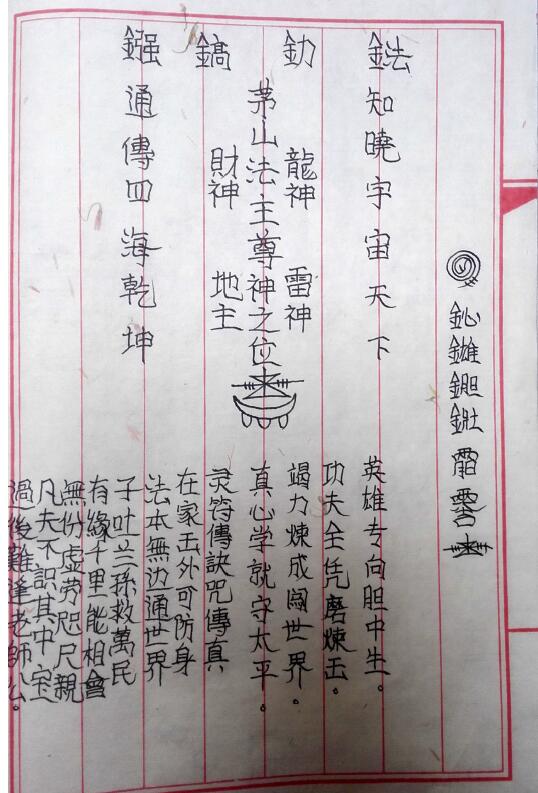 鈊䧺鉭鉎
鍅知曉宇宙天下
釛 龍神 雷神
茅山法主尊神之位
鎬 財神 地主
鏹通傳四海乾坤
英雄专向胆中生。
功夫全凭磨煉玉。
竭力煉成闯世界。
真心学就守太平。
灵符傳訣咒傳真
在家玉外可防身
法本無边通世界
子吐兰孫救萬民
有緣千里能相會
無份虚劳咫尺親
凡夫不识其中宝
過後難逢老師公。